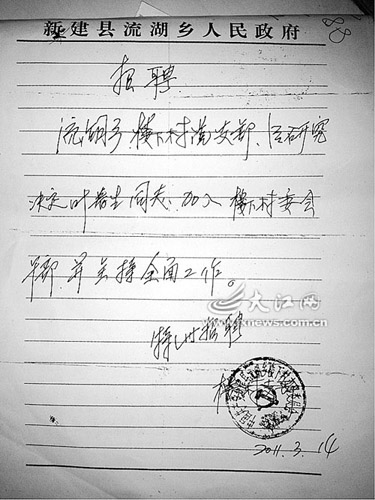 新建县流湖乡人民政府
88
招聘
流湖乡楼下村党支部、经研究
决定叶 生同志、加入楼下村委会
并主持全面工作。
特此招聘
大江网
xnews.com.cn
楼
2011.3.14